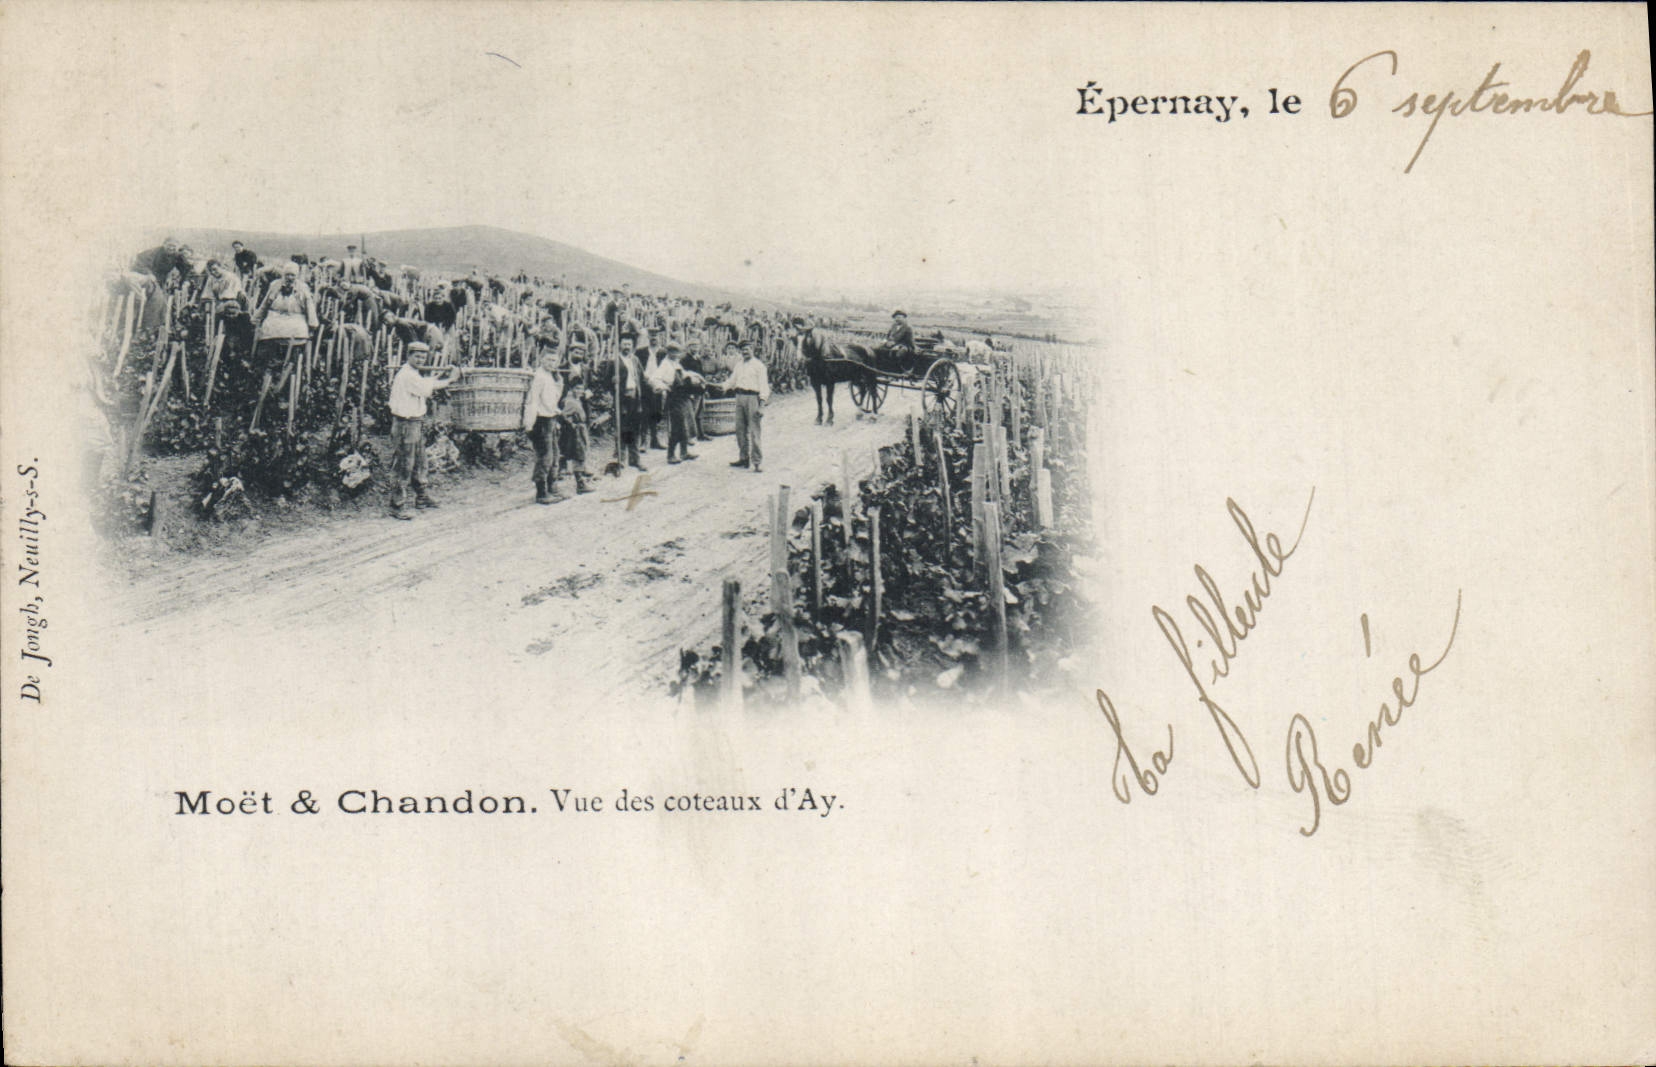 Épernay, le 6 septembre
De Jongh, Neuilly-s-S.
Ta filleule
Renée
Moët & Chandon. Vue des coteaux d'Ay.